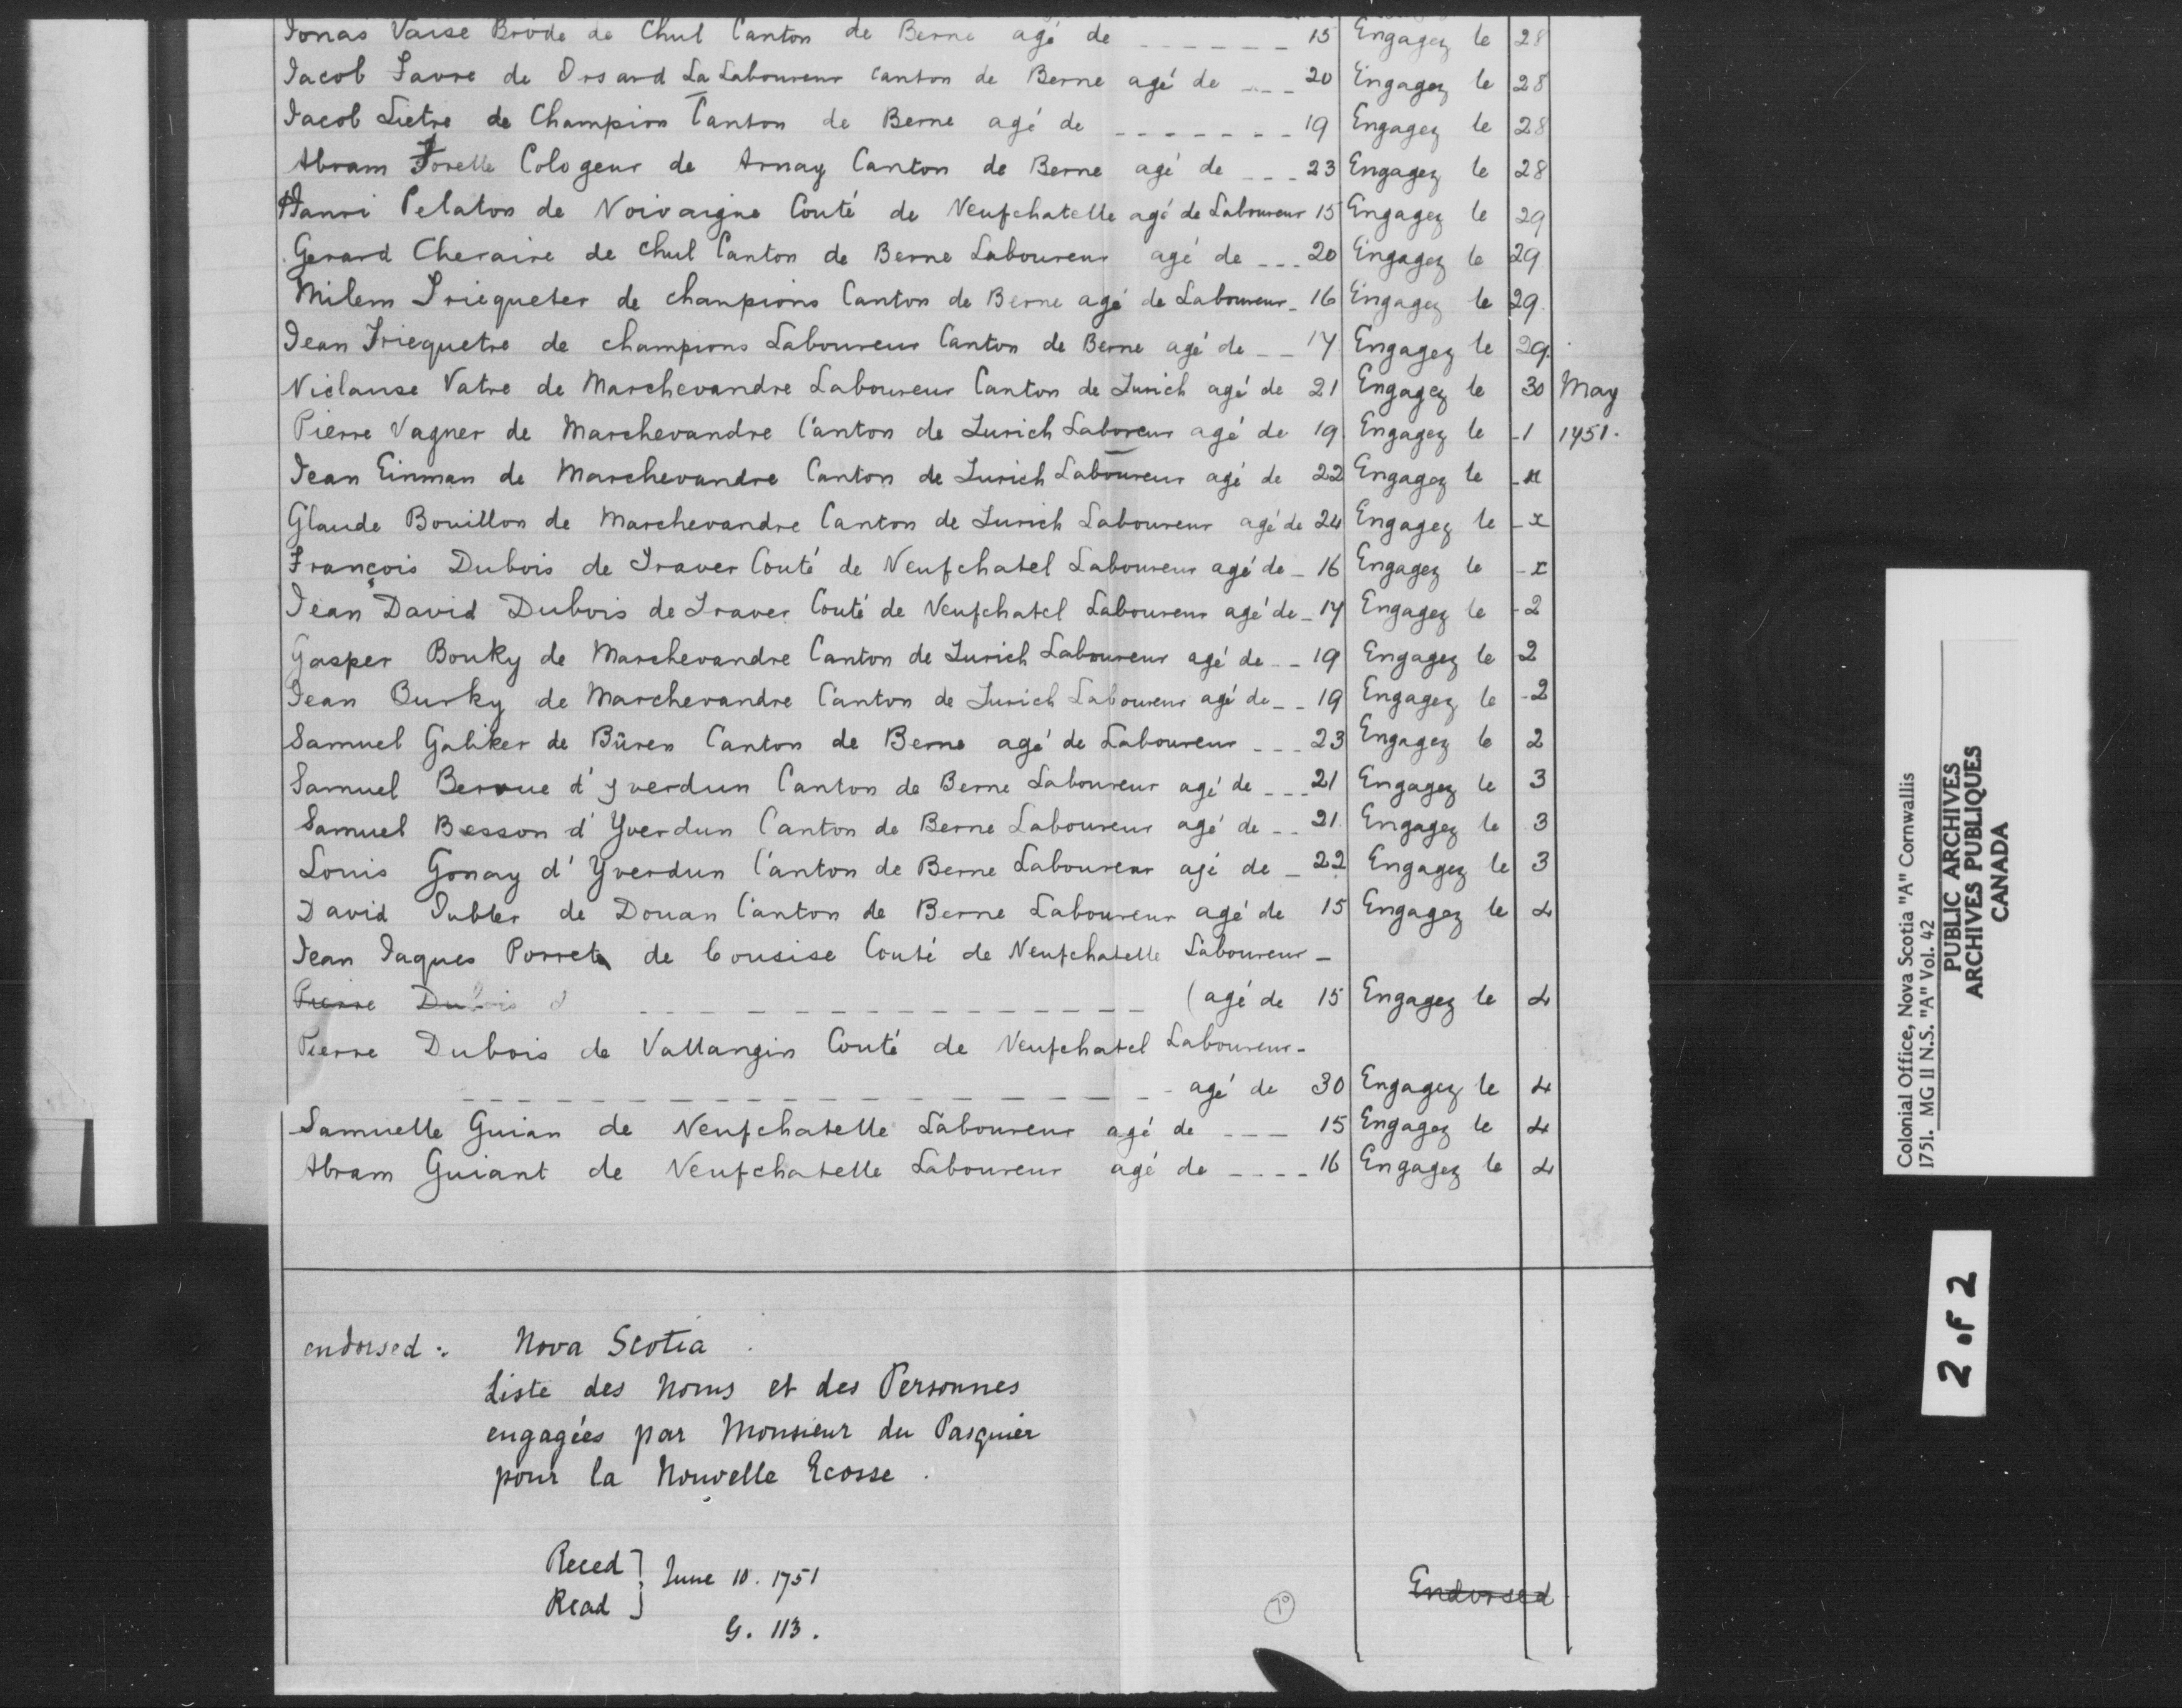 Jonas Vaise Brode de Chul Canton de Berne agé de 15 Engagez le 28
Jacob Favre de Orsard La Laboureur Canton de Berne agé de 20 Engagez le 28
Jacob Lietre de Champion Canton de Berne agé de 19 Engagez le 28
Abram Forelle Cologeur de Arnay Canton de Berne agé de 23 Engagez le 28
Hanri Pelaton de Noivaigne Couté de Neufchatelle agé de Laboureur 15 Engagez le 29
Gerard Cheraire de Chul Canton de Berne Laboureur agé de 20 Engagez le 29
Milem Triequeter de champions Canton de Berne agé de Laboureur 16 Engagez le 29.
Jean Triequetre de champions Laboureur Canton de Berne agé de 17 Engagez le 29.
Niclause Vatre de Marchevandre Laboureur Canton de Zurich agé de 21 Engagez le 30 May
Pierre Vagner de Marchevandre Canton de Zurich Laboreur agé de 19 Engagez le 1 1751.
Jean Einman de Marchevandre Canton de Zurich Laboureur agé de 22 Engagez le
Glaude Bouillon de Marchevandre Canton de Zurich Laboureur agé de 24 Engagez le x
François Dubois de Traver Couté de Neufchatel Laboureur agé de 16 Engagez le x
Jean David Dubois de Traver Couté de Neufchatel Laboureur agé de 17 Engagez le 2
Gasper Bouky de Marchevandre Canton de Zurich Laboureur agé de 19 Engagez le 2
Jean Burky de Marchevandre Canton de Zurich Laboureur agé de 19 Engagez le 2
Samuel Galiker de Büren Canton de Berne agé de Laboureur 23 Engagez le 2
Samuel Beroue d'yverdun Canton de Berne Laboureur agé de 21 Engagez le 3
Samuel Besson d'Yverdun Canton de Berne Laboureur agé de 21 Engagez le 3
Louis Gonay d'Yverdun Canton de Berne Laboureur agé de 22 Engagez le 3
David Jubler de Douan Canton de Berne Laboureur agé de 15 Engagez le 4
Jean Jaques Porret de Cousise Couté de Neufchatelle Laboureur
Pierre Dubois d (agé de 15 Engagez le 4
Pierre Dubois de Vallangin Couté de Neufchatel Laboureur
agé de 30 Engagez le 4
Samuelle Guian de Neufchatelle Laboureur agé de 15 Engagez le 4
Abram Guiant de Neufchatelle Laboureur agé de 16 Engagez le 4
endorsed: Nova Scotia.
Liste des Noms et des Personnes
engagées par Monsieur du Pasquier
pour la Nouvelle Ecosse.
Reced
Read } June 10. 1751
G. 113.
Endorsed
Colonial Office, Nova Scotia "A" Cornwallis
1751. MG 11 N.S. "A" Vol. 42
PUBLIC ARCHIVES
ARCHIVES PUBLIQUES
CANADA
2 of 2